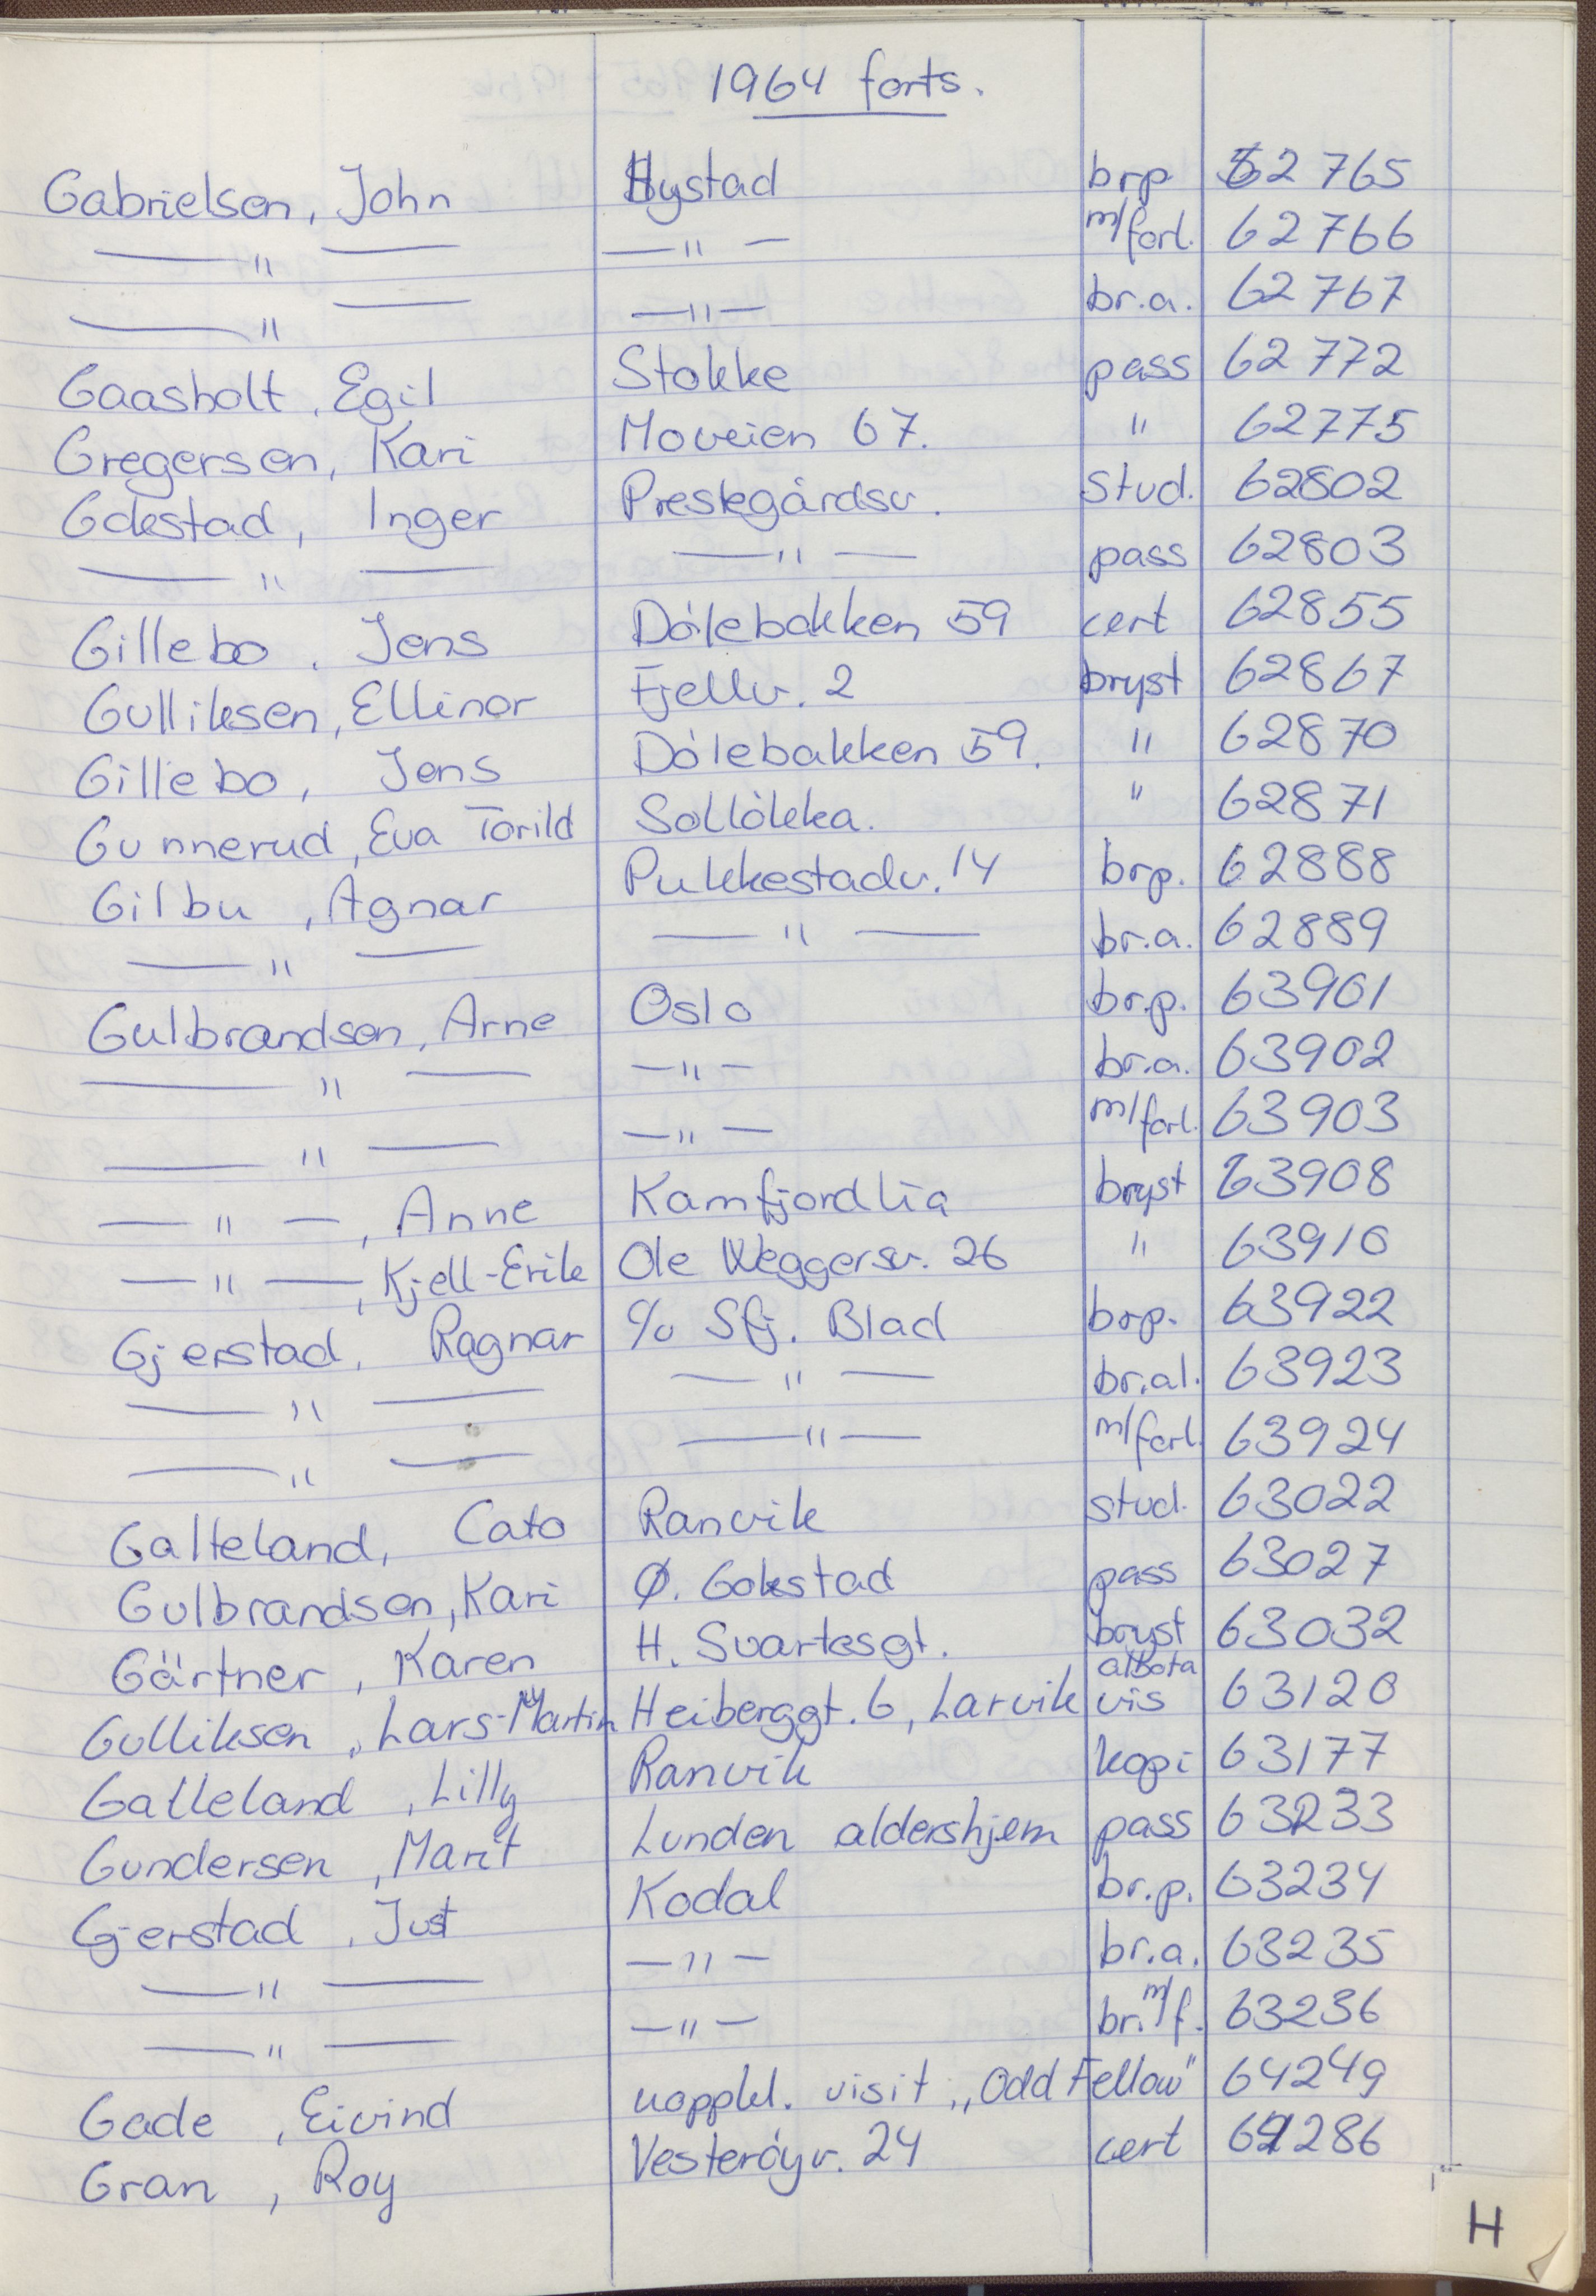 1964 forts.
Gabrielsen, John Hystad brp. 62765
—— " —— — " — m/forl. 62766
—— " —— — " — br.a. 62767
Gaasholt, Egil Stokke pass 62772
Gregersen, Kari Moveien 67. " 62775
Gokstad, Inger Prestegårdsv. stud. 62802
—— " —— —— " —— pass 62803
Gillebo, Jens Dölebakken 59 cert 62855
Gulliksen, Ellinor Fjellv. 2 bryst 62867
Gillebo, Jens Dölebakken 59. " 62870
Gunnerud, Eva Torild Sollökka. " 62871
Gilbu, Agnar Pukkestadv. 14 brp. 62888
—— " —— —— " —— br.a. 62889
Gulbrandsen, Arne Oslo br.p. 63901
—— " —— — " — br.a. 63902
—— " —— — " — m/forl. 63903
— " —, Anne Kamfjordlia bryst 63908
— " —, Kjell-Erik Ole Weggersv. 26 " 63910
Gjerstad, Ragnar c/o Sfj. Blad brp. 63922
—— " —— —— " —— br.al. 63923
—— " —— —— " —— m/forl. 63924
Galteland, Cato Ranvik stud. 63022
Gulbrandsen, Kari Ø. Gokstad pass 63027
Gärtner, Karen H. Svartesgt. bryst 63032
Gulliksen, Lars-Martin Heiberggt. 6, Larvik vis 63120
Galleland, Lilly Ranvik kopi 63177
Gundersen, Marit Lunden aldershjem pass 63233
Gjerstad, Just Kodal br.p. 63234
—— " —— — " — br.a. 63235
—— " —— — " — br. m/f. 63236
Gade, Eivind uoppkl. visit „Odd Fellow" 64249
Gran, Roy Vesteröyv. 24 cert 64286
H